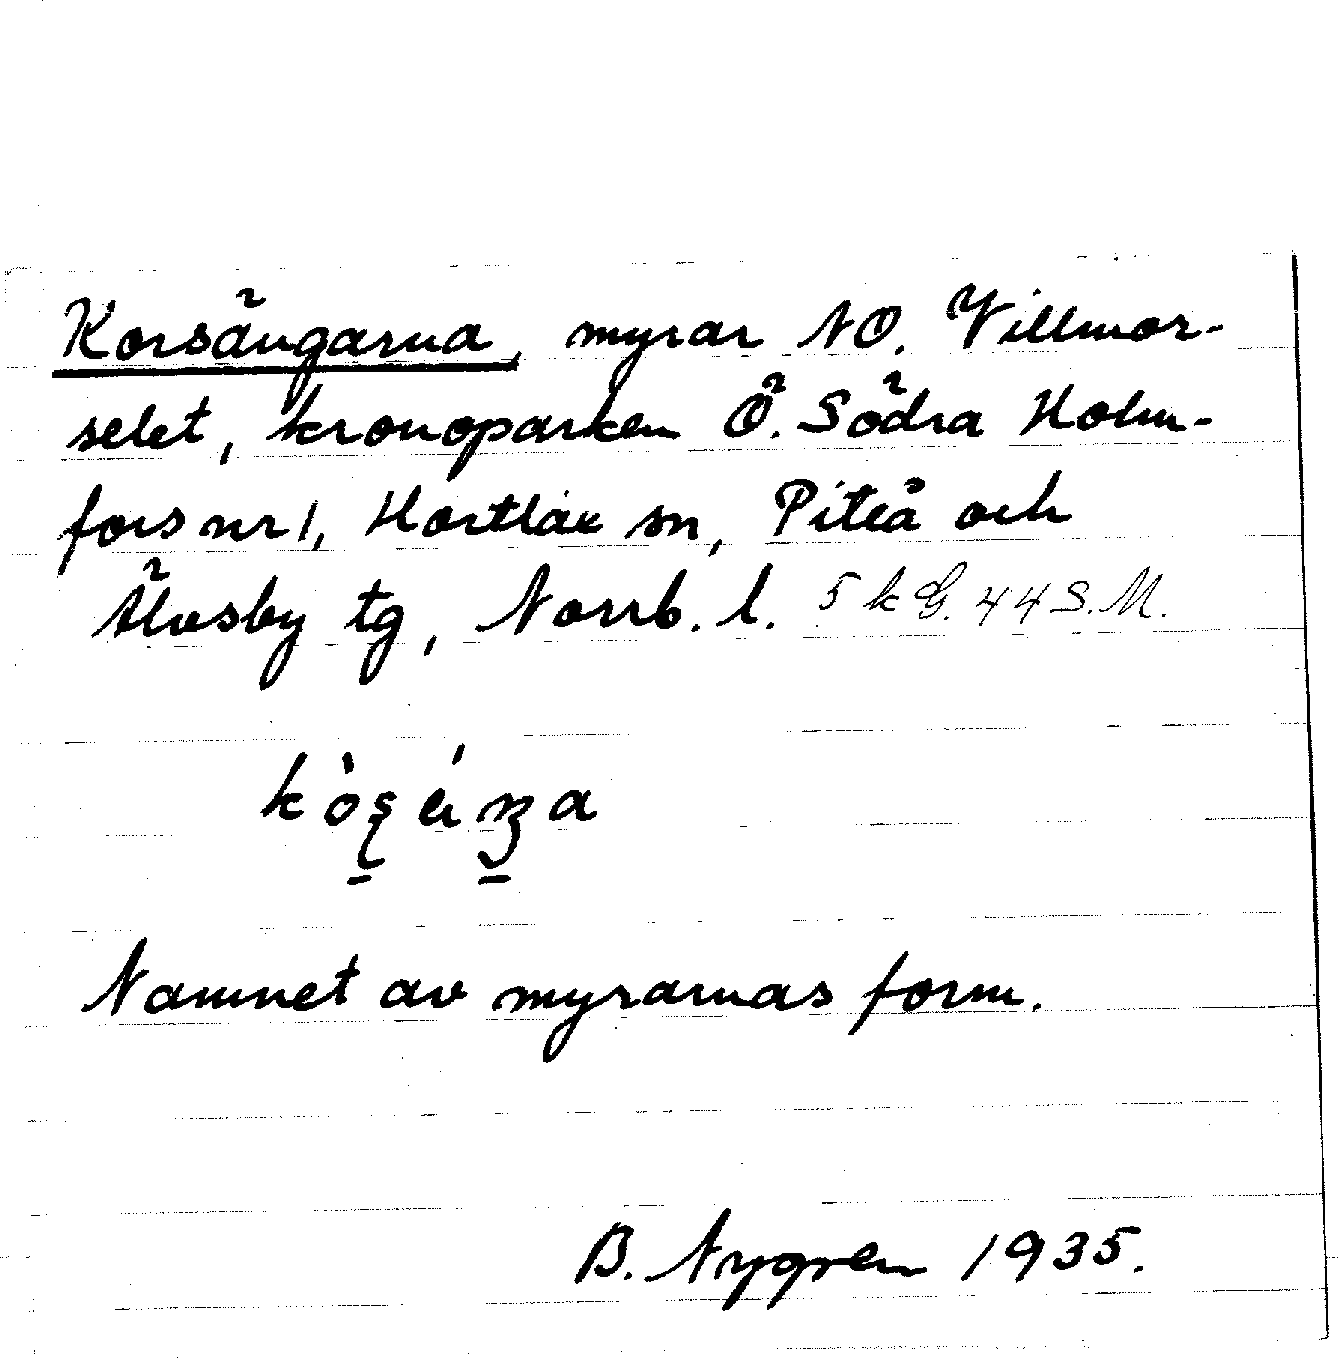 Korsängarna, myrar NO. Villmor-
selet, kronoparken Ö. Södra Holm-
fors nr 1, Hortlax sn, Piteå och
Älvsby tg, Norrb. l. 5 k G. 44 S.M.
Namnet av myrarnas form.
B. Nygren 1935.